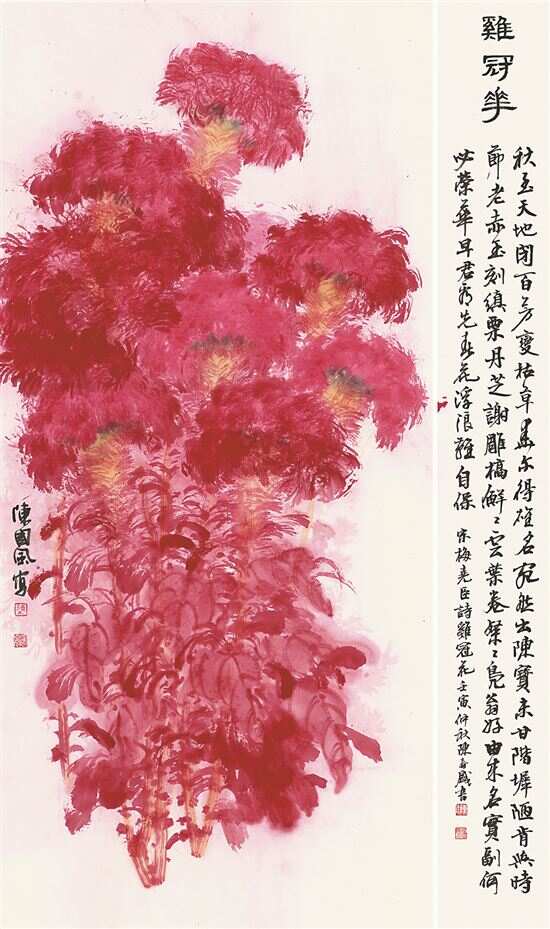 雞冠花
秋至天地閉百芳變枯草愛尔得雄名宛然出陳寶未甘階墀陋肯與時
節老赤玉刻縝栗丹芝謝雕槁鮮〻雲葉卷粲〻鳧翁好由來名實副何
必榮華早君看先春花浮浪難自保
宋梅堯臣詩雞冠花壬寅仲秋陳春盛書
陳國風寫